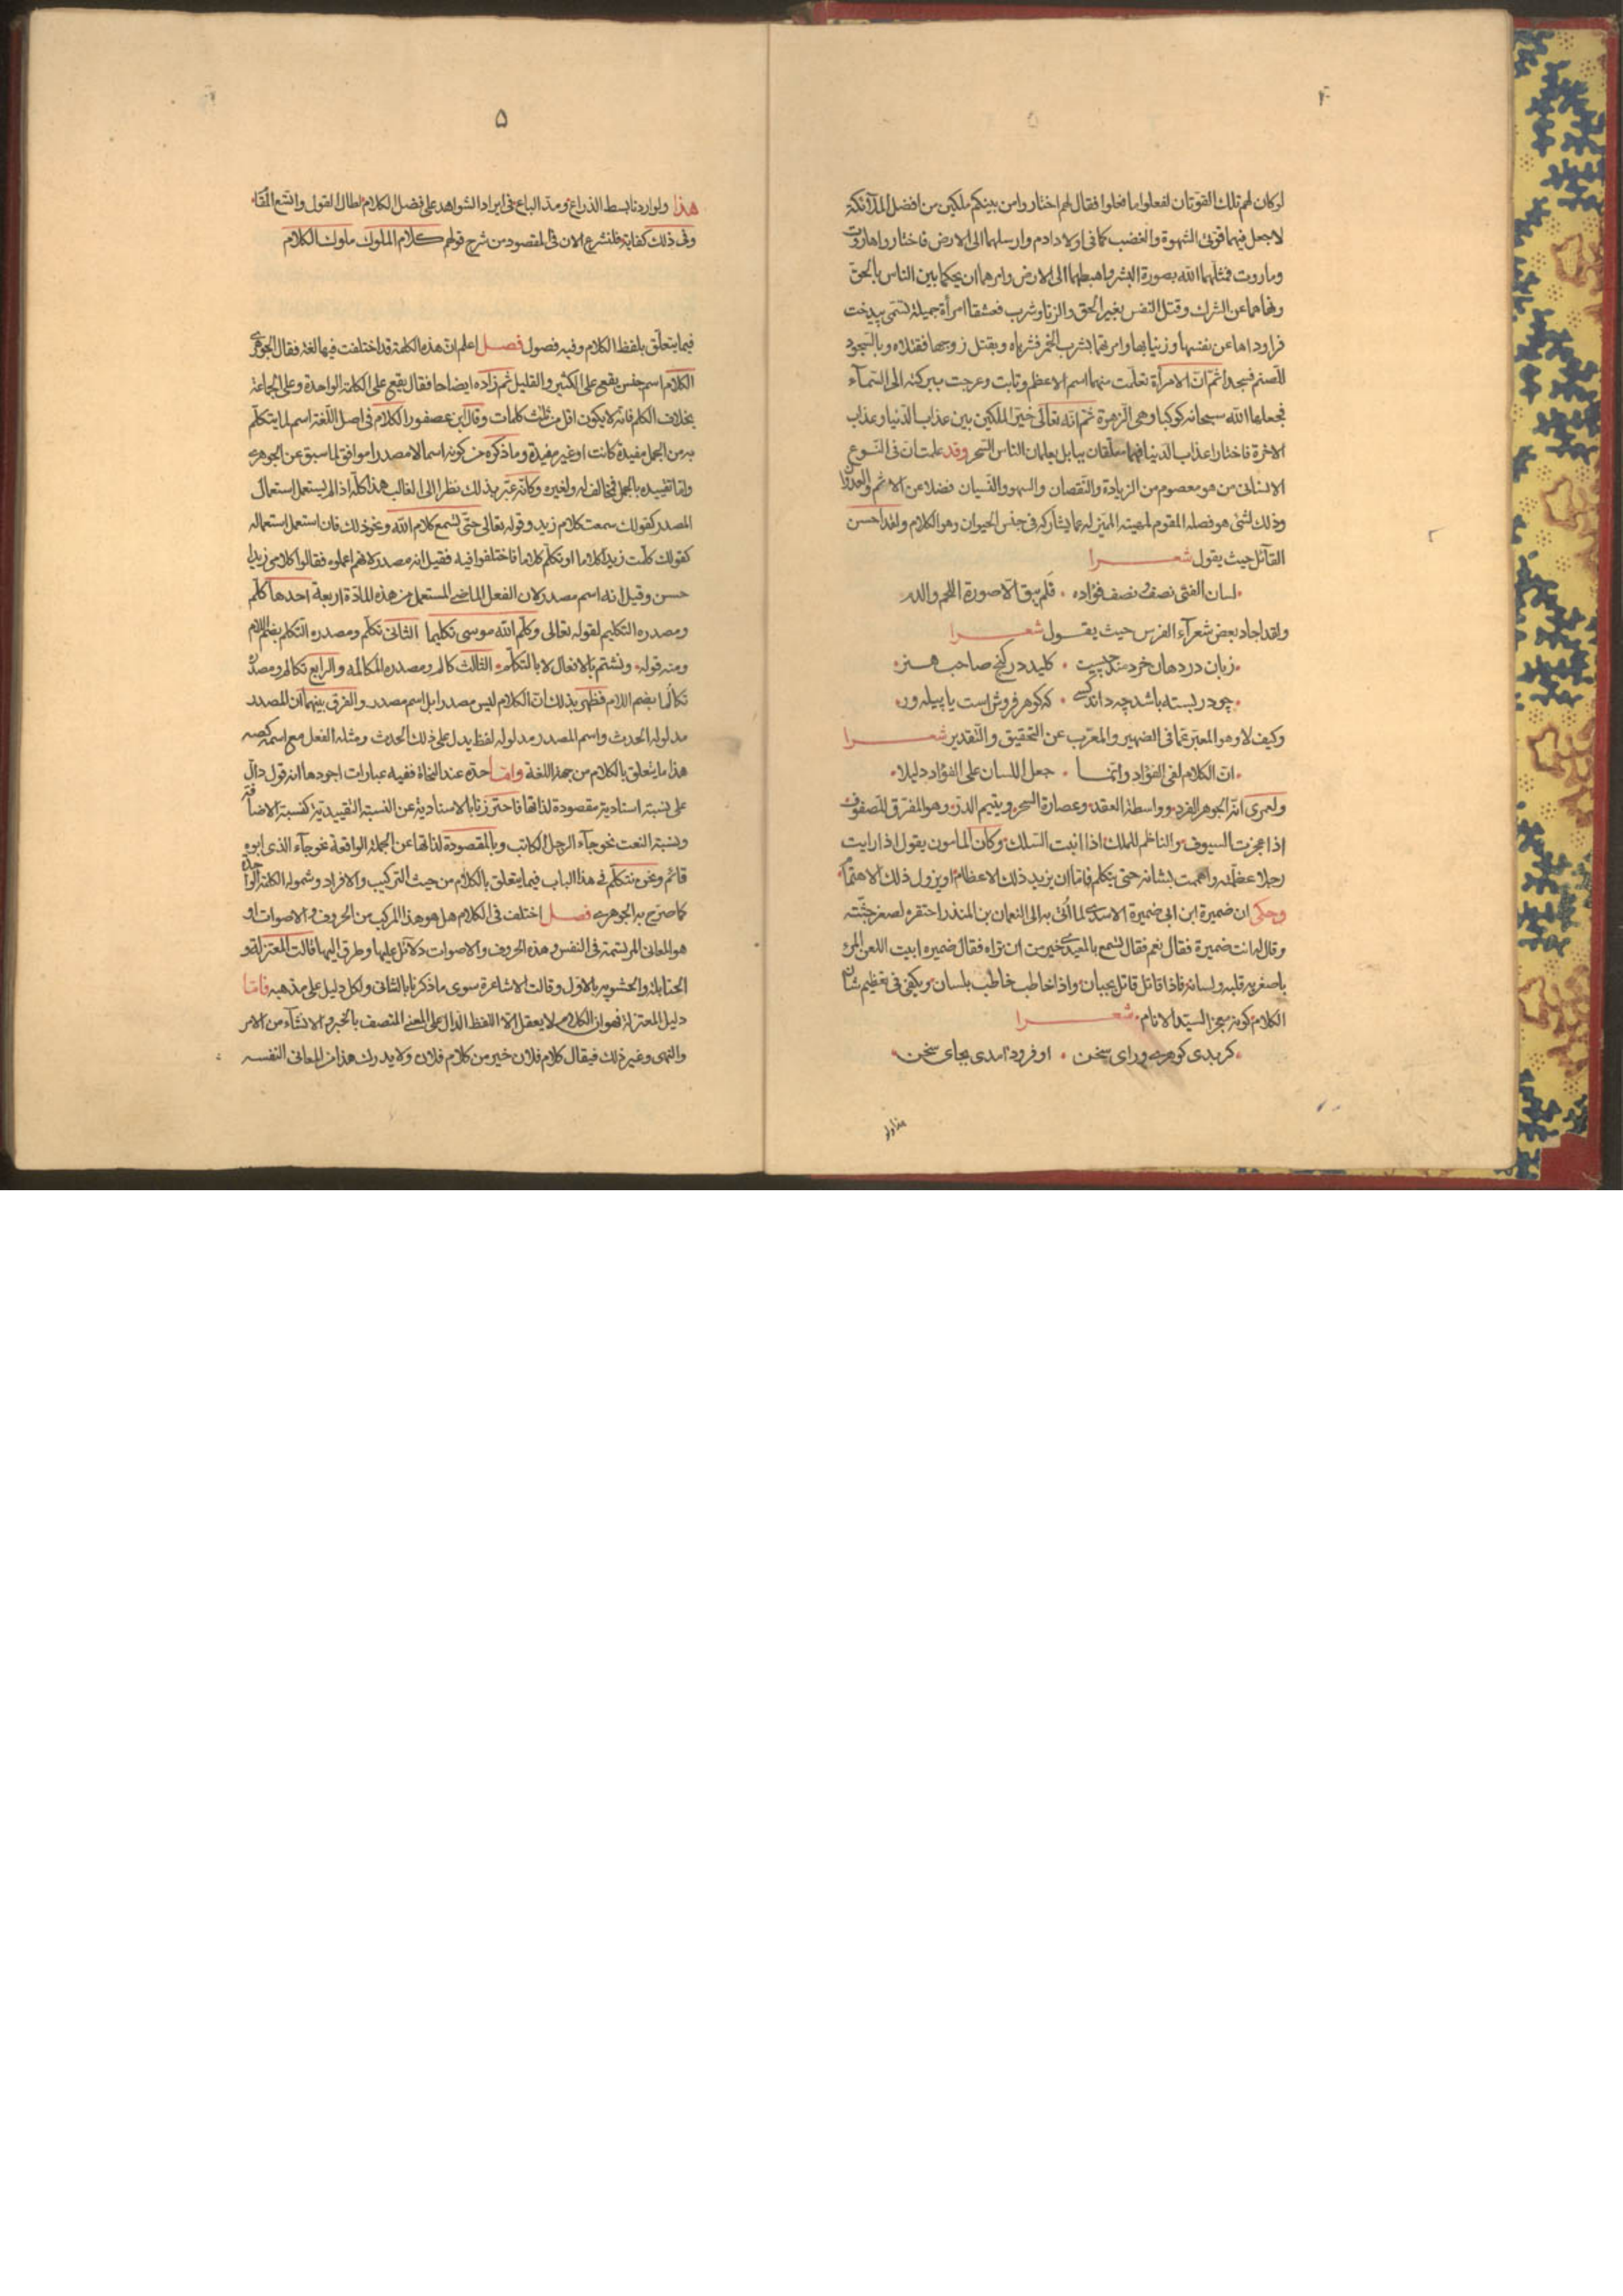 ۴
لو كان لهم تلك القوتان لفعلوا ما فعلوا فقال لهم اختاروا من بينكم ملكين من افضل الملآئكة
لاجعل فيهما قوتى الشهوة والغضب كما فى اولاد ادم وارسلهما الى الارض فاختاروا هاروت
وماروت فمثلهما الله بصورة البشر واهبطهما الى الارض وامرهما ان يحكما بين الناس بالحق
ونهاهما عن الشرك وقتل النفس بغير الحق والزنا وشرب فعشقا امرأة جميلة تسمى بيدخت
فراوداها عن نفسها وزنيا بها وامرتهما بشرب الخمر فشرباه وبقتل زوجها فقتلاه وبالسجود
للصنم فسجدا ثم ان الامرأة تعلمت منهما اسم الاعظم وتابت وعرجت ببركته الى السمآء
فجعلها الله سبحانه كوكبا وهى الزهرة ثم انه تعالى خير الملكين بين عذاب الدنيا وعذاب
الاخرة فاختارا عذاب الدنيا فهما معلقان ببابل يعلمان الناس السحر وقد علمت ان فى النوع
الانسانى من هو معصوم من الزيادة والنقصان والسهو والنسيان فضلا عن الاثم والعدوان
وذلك لشئ هو فصله المقوم لمهيته المميز له عما يشاركه فى جنس الحيوان وهو الكلام ولقد احسن
القآئل حيث يقول شعرا
لسان الفتى نصف ونصف فؤاده • فلم يبق الا صورة اللحم والدم
ولقد اجاد بعض شعرآء الفرس حيث يقول شعرا
زبان در دهان خردمند چيست • كليد در گنج صاحب هنر
چو در بسته باشد چه داند كسى • كه گوهر فروش است يا پيله ور
وكيف لا وهو المعبر عما فى الضمير والمعرب عن التحقيق والتقدير شعرا
ان الكلام لفى الفؤاد وانما • جعل اللسان على الفؤاد دليلا
ولعمرى انه الجوهر الفرد وواسطة العقد وعصارة السحر ويتيم الدر وهو المفرق للصفوف
اذا عجزت السيوف والناظم للملك اذا انبت السلك وكان المأمون يقول اذا رايت
رجلا عظمته واهممت بشانه حتى يتكلم فاما ان يزيد ذلك الاعظام او يزول ذلك الاهتمام
وحكى ان ضميرة ابن ابى ضميرة الاسدى لما اتى به الى النعمان بن المنذر احتقره لصغر جثته
وقال له انت ضميرة فقال نعم فقال تسمع بالمعيدى خير من ان تراه فقال ضميره ابيت اللعن المرء
باصغريه قلبه ولسانه فاذا قاتل قاتل بجنان واذا خاطب خاطب بلسان ويكفى فى تعظيم شان
الكلام كونه معجز السيد الانام شعرا
كر بدى كوهرى وراى سخن • او فرود امدى بجاى سخن
هذا ولو
۵
هذا ولو اردنا بسط الذراع ومد الباع فى ايراد الشواهد على فضل الكلام لطال القول واتسع المقام
وفى ذلك كفاية فلنشرع الان فى المقصود من شرح قولهم كلام الملوك ملوك الكلام
فيما يتعلق بلفظ الكلام وفيه فصول فصل اعلم ان هذه الكلمة قد اختلفت فيها لغة فقال الجوهرى
الكلام اسم جنس يقع على الكثير والقليل ثم زاده ايضاحا فقال يقع على الكلمة الواحدة وعلى الجماعة
بخلاف الكلم فانه لا يكون اقل من ثلث كلمات وقال ابن عصفور الكلام فى اصل اللغة اسم لما يتكلم
به من الجمل مفيدة كانت او غير مفيدة وما ذكره من كونه اسما لا مصدرا موافق لما سبق عن الجوهرى
واما تقييده بالجمل فمخالف له ولغيره وكانه عبر بذلك نظرا الى الغالب هذا كله اذا لم يستعمل استعمال
المصدر كقولك سمعت كلام زيد وقوله تعالى حتى تسمع كلام الله ونحو ذلك فان استعمل استعماله
كقولك كلمت زيدا كلاما او تكلم كلاما فاختلفوا فيه فقيل انه مصدر لانهم اعملوه فقالوا كلامى زيدا
حسن وقيل انه اسم مصدر لان الفعل الماضى المستعمل من هذه المادة اربعة احدها كلم
ومصدره التكليم لقوله تعالى وكلم الله موسى تكليما الثانى تكلم ومصدره التكلم بضم اللام
ومنه قوله ونشتم بالافعال لا بالتكلم الثالث كالم ومصدره المكالمه والرابع تكالم ومصدره
تكالما بضم اللام فظهر بذلك ان الكلام ليس مصدرا بل اسم مصدر والفرق بينهما ان المصدر
مدلوله الحدث واسم المصدر مدلوله لفظ يدل على ذلك الحدث ومثله الفعل مع اسمه كصه
هذا ما يتعلق بالكلام من جهة اللغة واما حده عند النحاة ففيه عبارات اجودها انه قول دال
على نسبة اسنادية مقصودة لذاتها فاحترزنا بالاسنادية عن النسبة التقييدية كنسبة الاضافة
ونسبة النعت نحو جآء الرجل الكاتب وبالمقصودة لذاتها عن الجملة الواقعة نحو جآء الذى ابوه
قائم ونحن نتكلم فى هذا الباب فيما يتعلق بالكلام من حيث التركيب والافراد وشموله الكلمة الواحدة
كما صرح به الجوهرى فصل اختلف فى الكلام هل هو هذا المركب من الحروف والاصوات او
هو المعانى المرتسمة فى النفس وهذه الحروف والاصوات دلآئل عليها وطرق اليها فقالت المعتزلة و
الحنابلة والحشويه بالاول وقالت الاشاعرة سوى ما ذكرنا بالثانى ولكل دليل على مذهبه فاما
دليل المعتزلة فهو ان الكلام لا يعقل الا اللفظ الدال على المعنى المتصف بالخبر والانشآء من الامر
والنهى وغير ذلك فيقال كلام فلان خير من كلام فلان ولا يدرك هذا من المعانى النفسه